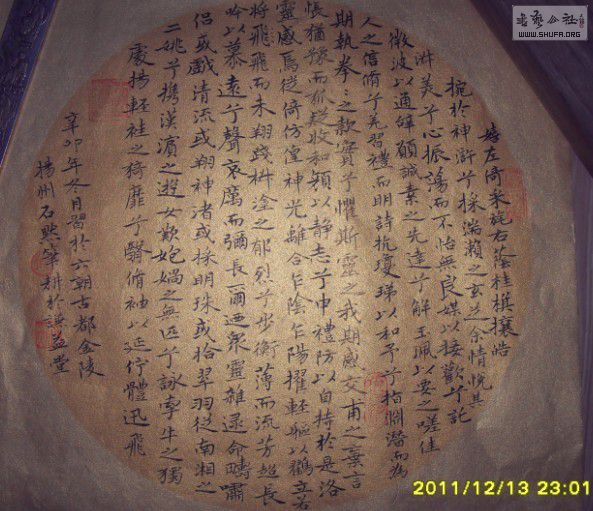 嬉左倚采旄右蔭桂旗攘皓
捥於神滸兮採湍瀨之玄芝余情悅其
淑美兮心振蕩而不怡無良媒以接歡兮託
微波以通辭願誠素之先達兮解玉珮以要之嗟佳
人之信脩兮羌習禮而明詩抗瓊珶以和予兮指淵潛而為
期執拳之款實兮懼斯靈之我期感交甫之棄言
悵猶豫而狐疑收和顏以靜志兮申禮防以自持於是洛
靈感焉徙倚彷徨神光離合乍陰乍陽擢輕軀以鶴立若
將飛飛而未翔踐椒塗之郁烈兮步衡薄而流芳超長
吟以慕遠兮聲哀厲而彌長爾迺衆靈雜遝命疇嘯
侶或戲清流或翔神渚或採明珠或拾翠羽從南湘之
二姚兮攜漢濱之遊女歎匏媧之無匹兮詠牽牛之獨
處揚輕袿之猗靡兮翳脩袖以延佇體迅飛
辛卯年冬月習於六朝古都金陵
揚州石默筆耕於謙益堂
WWW.SHUFA.ORG
2011/12/13 23:01